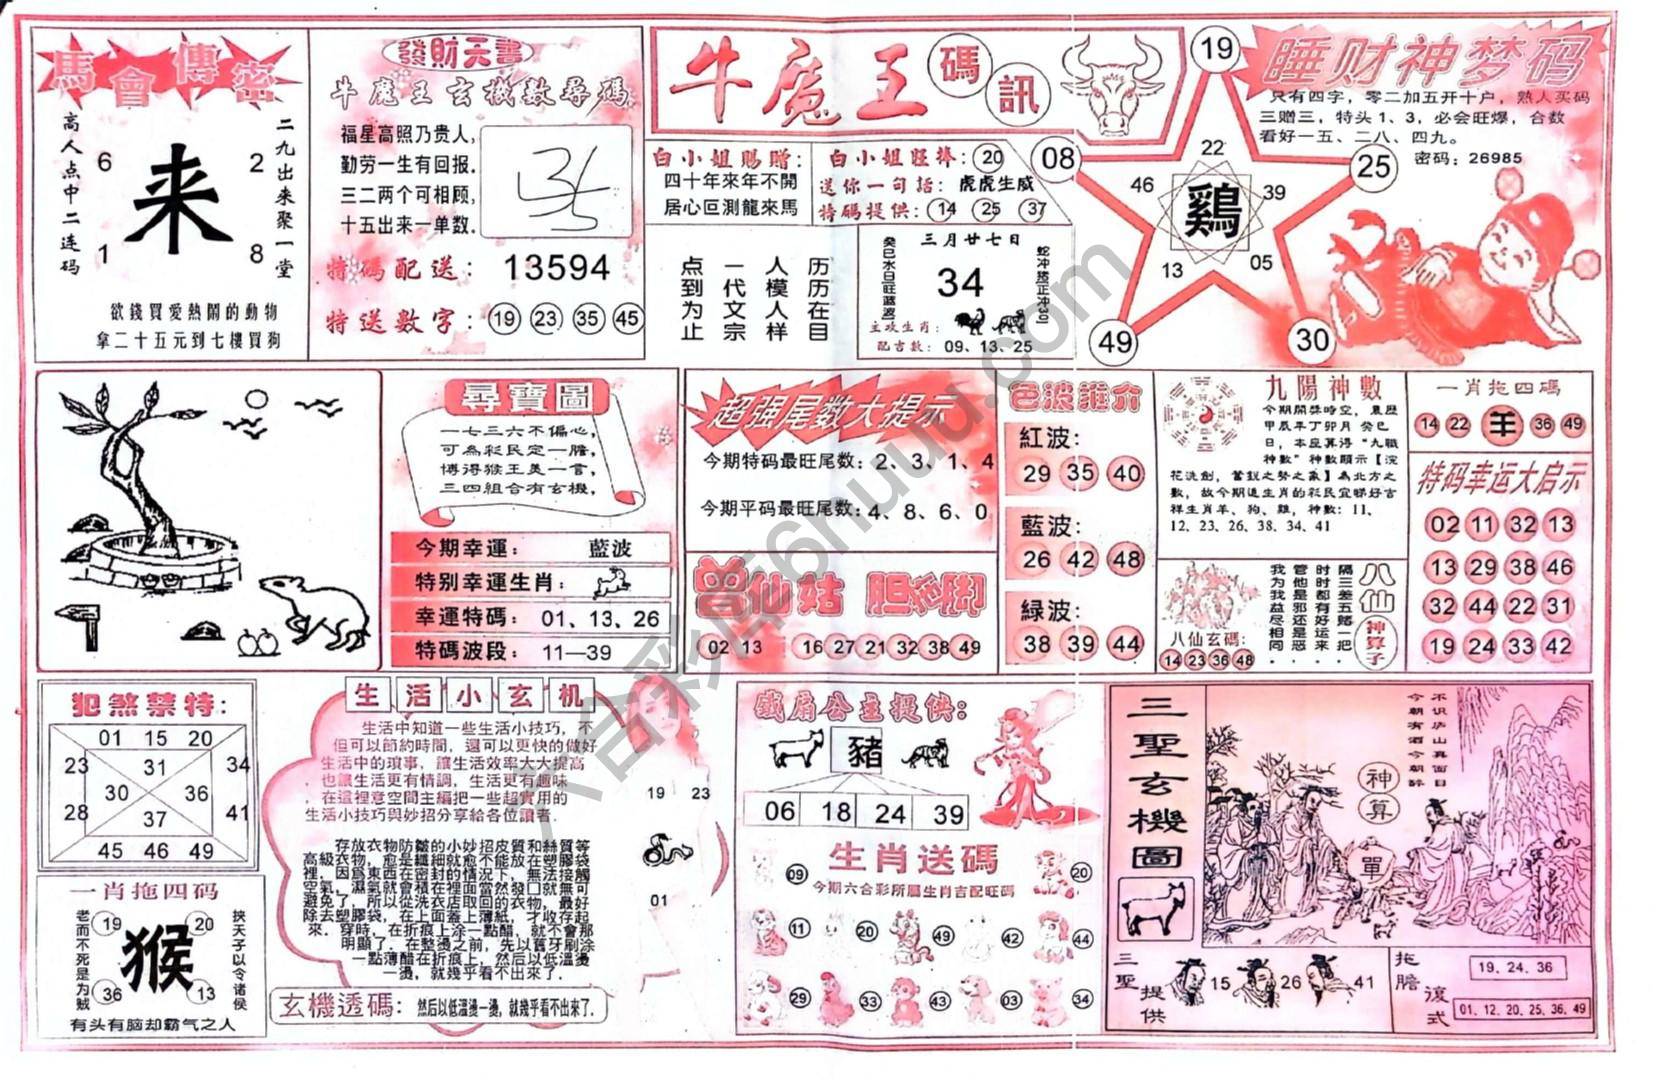 馬會傳密
高人点中二连码
6
1
来
2
8
二九出来聚一堂
欲錢買愛熱鬧的動物
拿二十五元到七樓買狗
發財天書
牛魔王玄機數尋碼
福星高照乃贵人,
勤劳一生有回报.
三二两个可相顾,
十五出来一单数.
特码配送: 13594
特送數字: 19 23 35 45
牛魔王
碼訊
白小姐賜贈:
四十年來年不開
居心叵測龍來馬
白小姐旺捧: 20
送你一句話: 虎虎生威
特碼提供: 14 25 37
历历在目
人模人样
一代文宗
点到为止
三月廿七日
34
主攻生肖:
配吉數: 09、13、25
19
08
25
49
30
22
46
39
鷄
13
05
睡财神梦码
只有四字, 零二加五开十户, 熟人买码
三赠三, 特头1、3, 必会旺爆, 合数
看好一五、二八、四九。
密码: 26985
尋寶圖
一七三六不偏心,
可為彩民定一膽,
博得猴王美一言,
三四組合有玄機,
今期幸運: 藍波
特別幸運生肖:
幸運特碼: 01、13、26
特碼波段: 11—39
超强尾数大提示
今期特码最旺尾数: 2、3、1、4
今期平码最旺尾数: 4、8、6、0
曾仙姑 胆拖脚
02 13 16 27 21 32 38 49
色波推介
紅波:
29 35 40
藍波:
26 42 48
緑波:
38 39 44
九陽神數
今期開獎時空, 農歷
甲辰年丁卯月 癸巳
日, 本座算得“九職
神數”神數顯示【浣
花洗劍, 當鋭之勢之象】為北方之
數, 故今期追生肖的彩民宜睇好吉
祥生肖羊、狗、雞, 神數: 11、
12、23、26、38、34、41
八仙玄碼:
14 23 36 48
八仙
神算子
隔三差五赌一把
时时都有好运来
管他是邪还是惑
我为我益尽相同
一肖拖四碼
14 22 羊 36 49
特码幸运大启示
02 11 32 13
13 29 38 46
32 44 22 31
19 24 33 42
犯煞禁特:
01 15 20
23 31 34
30 36
28 37 41
45 46 49
一肖拖四码
老而不死是为贼
19 20
猴
36 13
挾天子以令诸侯
有头有脑却霸气之人
生活小玄机
生活中知道一些生活小技巧, 不
但可以節約時間, 還可以更快的做好
生活中的瑣事, 讓生活效率大大提高
也讓生活更有情調, 生活更有趣味
在這裡意空間主編把一些超實用的
生活小技巧與妙招分享給各位讀者.
存放衣物防皺的小妙招皮質和絲質等
高級衣物, 愈是纖細就愈不能放在塑膠袋
裡, 因爲東西在密封的情況下, 無法接觸
空氣, 濕氣就會積在裡面當然發囗就無可
避免了, 所以從洗衣店取回的衣物, 最好
除去塑膠袋, 在上面蓋上薄紙, 才收存起
來. 穿時, 在折痕上涂一點醋, 就不會那
明顯了. 在整燙之前, 先以舊牙刷涂
一點薄醋在折痕上, 然后以低溫燙
一燙, 就幾乎看不出來了.
玄機透碼: 然后以低溫燙一燙, 就幾乎看不出來了.
19 23
01
鐵扇公主提供:
豬
06 18 24 39
生肖送碼
今期六合彩所屬生肖吉配旺碼
09 20
11 20 49 42 44
29 33 43 03 34
三聖玄機圖
不识庐山真面目
今朝有酒今朝醉
神算
單
三聖提供
15 26 41
拖膽
19、24、36
復式
01、12、20、25、36、49
六合彩库6huuu.com